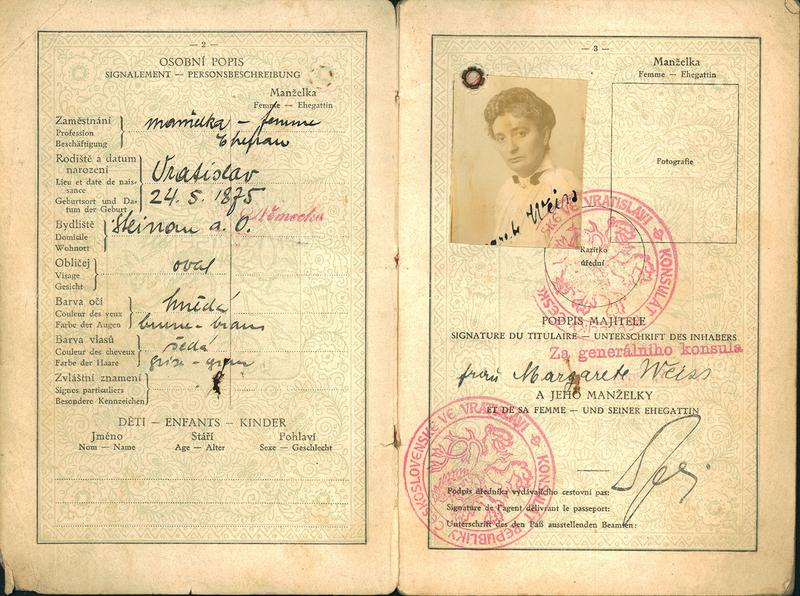 — 2 —
OSOBNÍ POPIS
SIGNALEMENT — PERSONSBESCHREIBUNG
Manželka
Femme — Ehegattin
Zaměstnání
Profession
Beschäftigung
manželka – femme
Ehefrau
Rodiště a datum
narození
Lieu et date de nais-
sance
Geburtsort und Da-
tum der Geburt
Vratislav
24. 5. 1875
Bydliště
Domicile
Wohnort
Steinau a. O.
Německo
Obličej
Visage
Gesicht
oval
Barva očí
Couleur des yeux
Farbe der Augen
hnědá
brune – braun
Barva vlasů
Couleur des cheveux
Farbe der Haare
šedá
grise – grau
Zvláštní znamení
Signes particuliers
Besondere Kennzeichen
DĚTI — ENFANTS — KINDER
Jméno Stáří Pohlaví
Nom — Name Age — Alter Sexe — Geschlecht
— 3 —
Manželka
Femme — Ehegattin
Fotografie
Weiss
Razítko
úřední
KONSULÁT
VE VRATISLAVI
PODPIS MAJITELE
SIGNATURE DU TITULAIRE — UNTERSCHRIFT DES INHABERS
Za generálního konsula
frau Margarete Weiss
A JEHO MANŽELKY
ET DE SA FEMME — UND SEINER EHEGATTIN
KONSULÁT REPUBLIKY ČESKOSLOVENSKÉ VE VRATISLAVI
Podpis úředníka vydávajícího cestovní pas:
Signature de l'agent délivrant le passeport:
Unterschrift des den Paß ausstellenden Beamten: